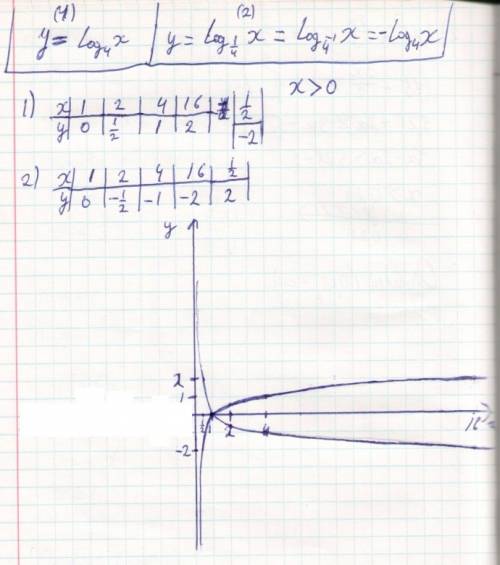 (1) (2)
y = log₄x | y = log_{1/4} x = log_{4⁻¹} x = -log₄x
x > 0
1) x | 1 | 2 | 4 | 16 | 1/2
y | 0 | 1/2 | 1 | 2 | -2
2) x | 1 | 2 | 4 | 16 | 1/2
y | 0 | -1/2 | -1 | -2 | 2
y
2
1
1/2 1 2 4
-2